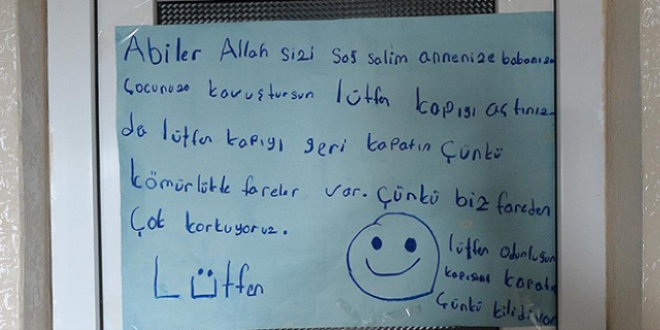 Abiler Allah sizi sağ salim annenize babanıza
Çocunuza kavuştursun lütfen kapıyı açtınız
da lütfen kapıyı geri kapatın Çünkü
kömürlükte fareler var. Çünkü biz fareden
Çok korkuyoruz.
Lütfen
lütfen odunluğun
kapısını kapatın
Çünkü kilidi yok